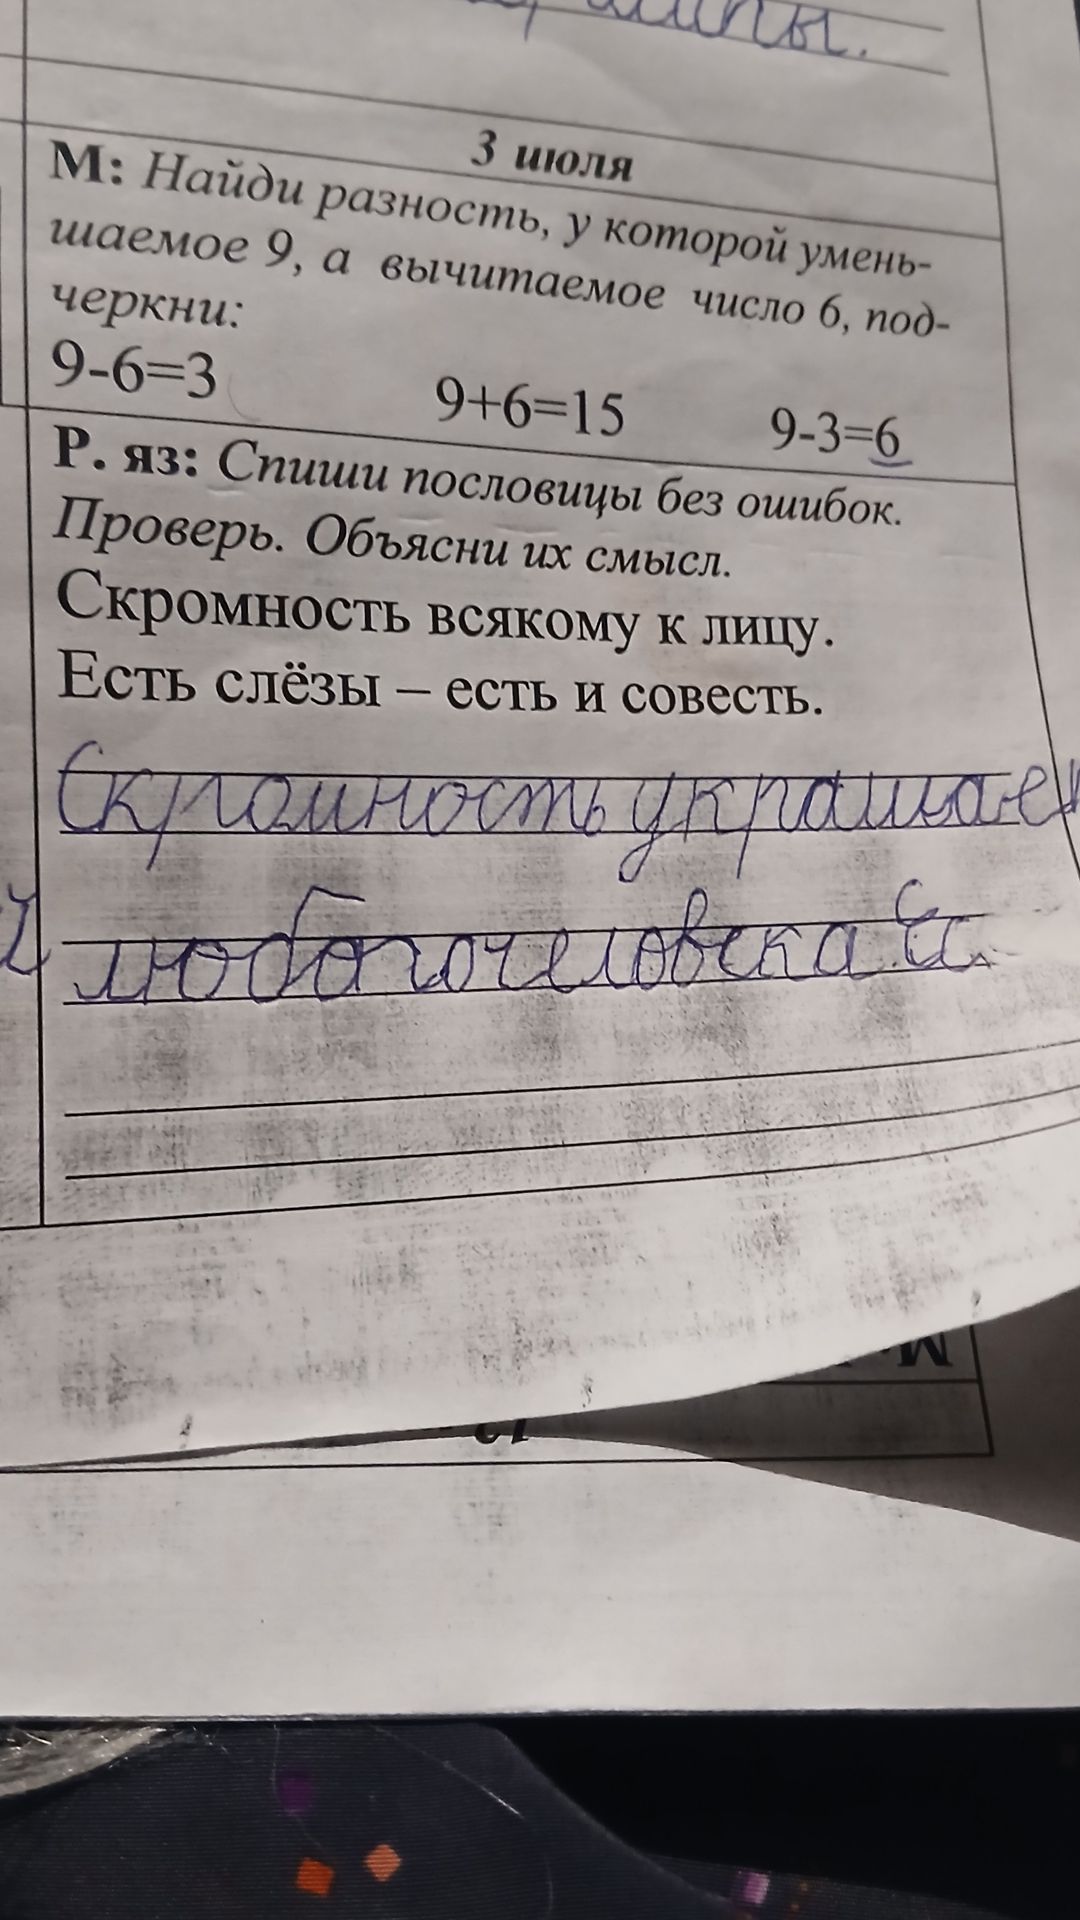 3 июля
М: Найди разность, у которой умень-
шаемое 9, а вычитаемое число 6, под-
черкни:
9-6=3 9+6=15 9-3=6
Р. яз: Спиши пословицы без ошибок.
Проверь. Объясни их смысл.
Скромность всякому к лицу.
Есть слёзы – есть и совесть.
Скромность украшает
любого человека